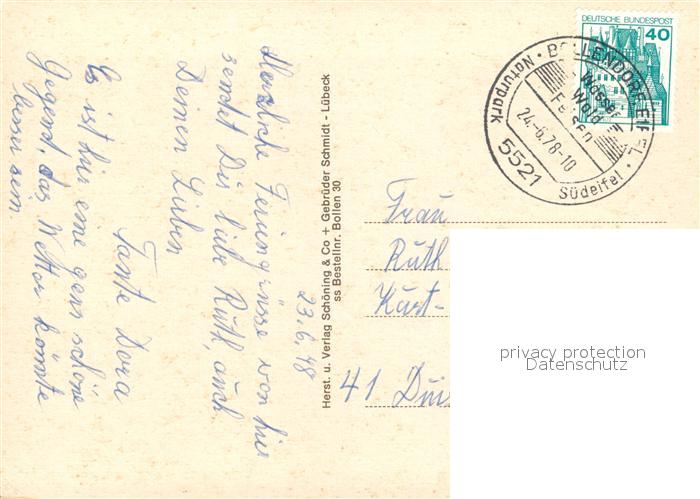 23.6.78
Herzliche Feriengrüsse von hier
sendet Dir liebe Ruth, auch
Deinen Lieben
Tante Dora
Es ist hier eine ganz schöne
Gegend, das Wetter könnte
besser sein.
Herst. u. Verlag Schöning & Co + Gebrüder Schmidt - Lübeck
ss Bestellnr. Bollen 30
DEUTSCHE BUNDESPOST
40
BOLLENDORF-EIFEL
Naturpark
Wasser
Wald
Felsen
24.-6.78-10
5521
Südeifel
Frau
Ruth
Kurt-
41 Dui
privacy protection
Datenschutz